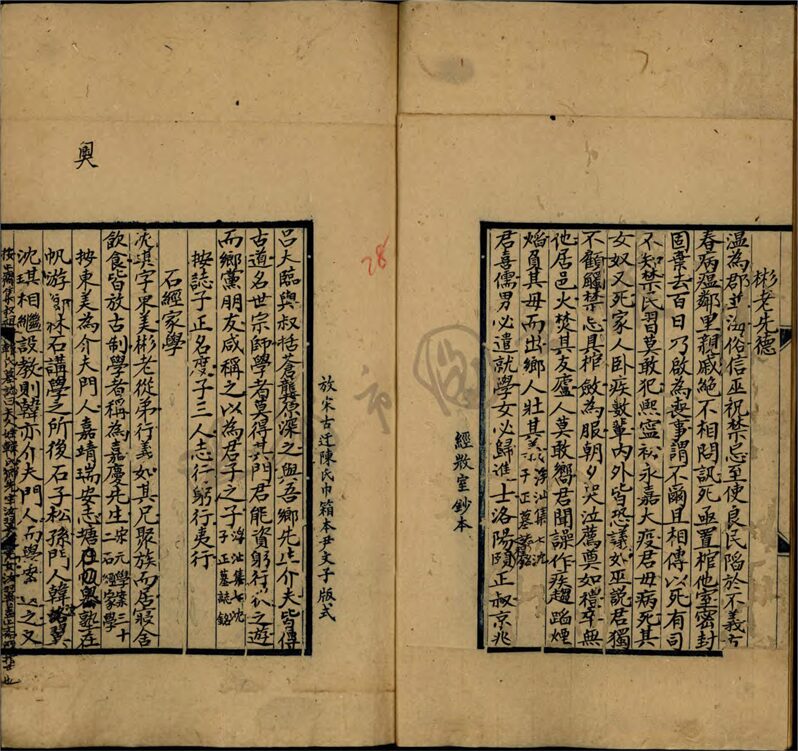 彬老先德
溫為郡其俗信巫祝禁忌至使良民陷於不義方
春病瘟鄰里親戚絕不相問訊死亟置棺他室密封
固棄去百日乃啟為喪事謂不爾且相傳以死有司
不知禁民習莫敢犯熙寧初永嘉大疫君毋病死其
女奴又死家人臥疾數輩內外皆恐議如巫說君獨
不顧觸禁忌具棺斂為服朝夕哭泣薦奠如禮卒無
他居邑火焚其友廬人莫敢嚮君聞譟作疾趨蹈煙
焰負其母而出鄉人壯其義浮沚集七沈子正墓誌銘
君喜儒男必遣就學女必歸進士洛陽程正叔京兆
經㪚室鈔本
放宋古迂陳氏巾箱本尹文子版式
呂大臨與叔括蒼龔原深之與吾鄉先生介夫皆傳
古道名世宗師學者莫得其門君能資躬行從之遊
而鄉黨朋友咸稱之以為君子之子浮沚集七沈子正墓誌銘
按誌子正名度子三人志行躬行夷行
石經家學
沈琪字東美彬老從弟行義如其兄聚族而居寢舍
飲食皆放古制學者稱為嘉慶先生宋元學案三十二石經家學
按東美為介夫門人嘉靖瑞安志塘
帆游石講學之所後石子松孫門人韓
沈琪相繼設教則韓亦介夫門人而與之文
奧
28